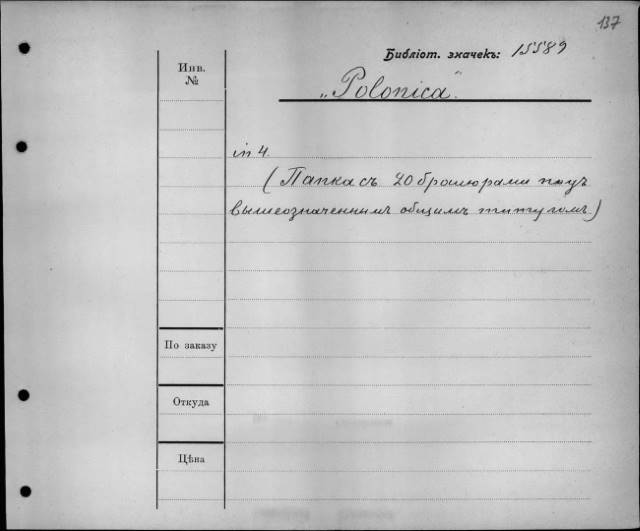 137
Библіот. значекъ: 15589
Инв.
№
„Polonica“.
in 4.
(Папка съ 20 брошюрами подъ
вышеозначеннымъ общимъ титуломъ.)
По заказу
Откуда
Цѣна